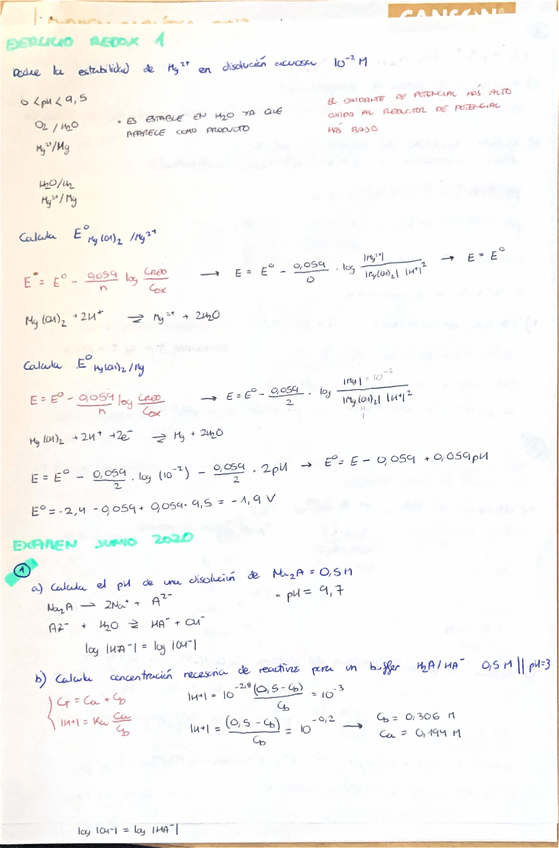 CANSON
EJERCICIO REDOX 1
Deduce la estabilidad de Mg²⁺ en disolución acuosa 10⁻² M
0 < pH < 9,5
O₂ / H₂O
Mg²⁺/Mg
· ES ESTABLE EN H₂O YA QUE
APARECE COMO PRODUCTO
EL OXIDANTE DE POTENCIAL MÁS ALTO
OXIDA AL REDUCTOR DE POTENCIAL
MÁS BAJO
H₂O/H₂
Mg²⁺/Mg
Calcula E⁰ Mg(OH)₂ /Mg²⁺
E = E⁰ - 0,059/n log Cred/Cox → E = E⁰ - 0,059/0 · log |Mg²⁺| / |Mg(OH)₂| |H⁺|² → E = E⁰
Mg(OH)₂ + 2H⁺ ⇌ Mg²⁺ + 2H₂O
Calcula E⁰ Mg(OH)₂/Mg
E = E⁰ - 0,059/n log Cred/Cox → E = E⁰ - 0,059/2 · log |Mg| = 10⁻² / |Mg(OH)₂| |H⁺|²
Mg(OH)₂ + 2H⁺ + 2e⁻ ⇌ Mg + 2H₂O
E = E⁰ - 0,059/2 · log (10⁻²) - 0,059/2 · 2pH → E⁰ = E - 0,059 + 0,059pH
E⁰ = -2,4 - 0,059 + 0,059 · 9,5 = -1,9 V
EXAMEN JUNIO 2020
1
a) Calcula el pH de una disolución de Na₂A = 0,5 M
Na₂A → 2Na⁺ + A²⁻
· pH = 9,7
A²⁻ + H₂O ⇌ HA⁻ + OH⁻
log |HA⁻| = log |OH⁻|
b) Calcula concentración necesaria de reactivos para un buffer H₂A/HA⁻ 0,5 M || pH=3
Cт = Ca + Cb
|H⁺| = Ka Ca/Cb
|H⁺| = 10⁻²·⁸ (0,5 - Cb)/Cb = 10⁻³
|H⁺| = (0,5 - Cb)/Cb = 10⁻⁰·² →
Cb = 0,306 M
Ca = 0,194 M
log |OH⁻| = log |HA⁻|